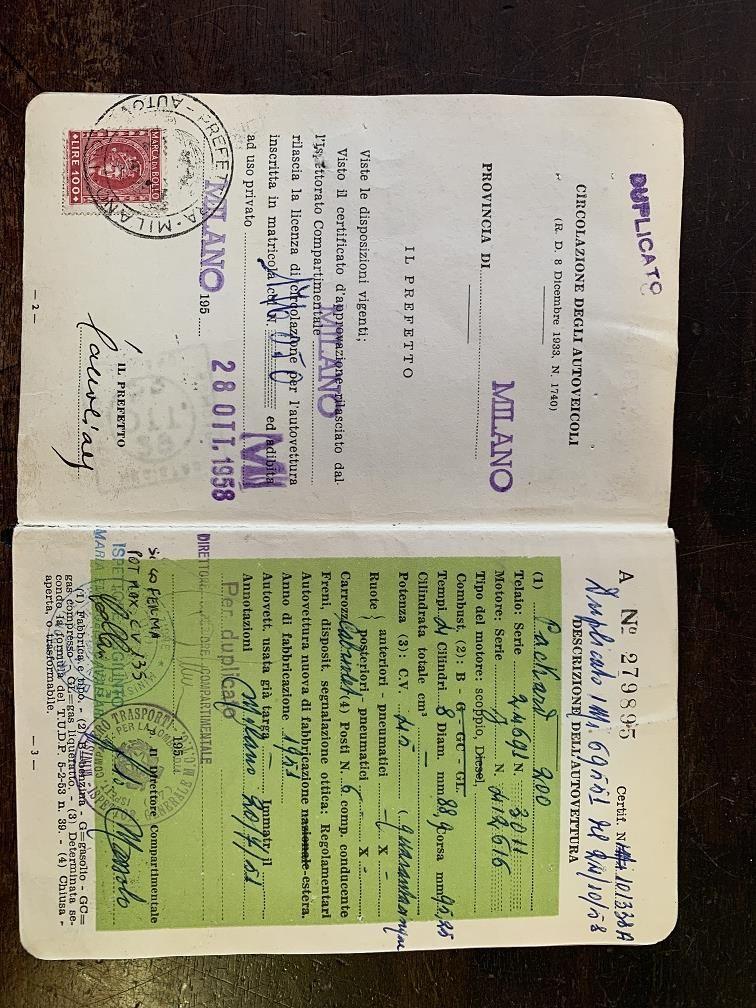 DUPLICATO
CIRCOLAZIONE DEGLI AUTOVEICOLI
(R. D. 8 Dicembre 1933, N. 1740)
PROVINCIA DI MILANO
IL PREFETTO
Viste le disposizioni vigenti;
Visto il certificato d'approvazione rilasciato dal-
l'Ispettorato Compartimentale MILANO
rilascia la licenza di circolazione per l'autovettura
inscritta in matricola col N. MI ed adibita
ad uso privato
MILANO 195 28 OTT. 1958
IL PREFETTO
PREFETTURA - MILANO - AUTO
MARCA DA BOLLO
LIRE 100
— 2 —
A Nº 279895 Certif. N. 101338A
Duplicato 69551 24/10/58
DESCRIZIONE DELL'AUTOVETTURA
(1) Packard 200
Telaio: Serie 24691 N. 3011
Motore: Serie J N. 412616
Tipo del motore: scoppio, Diesel,
Combust. (2): B - G - GC - GL
Tempi 4 Cilindri 8 Diam. mm 88,9 corsa mm 95,25
Cilindrata totale cm³ —
Potenza (3): C.V. 45 (quarantacinque
Ruote { anteriori - pneumatici — X —
posteriori - pneumatici X -
Carrozz. Cabriolet (4) Posti N. 6 comp. conducente
Freni, disposit. segnalazione ottica: Regolamentari
Autovettura nuova di fabbricazione nazionale-estera.
Anno di fabbricazione 1951
Autovett. usata già targa — Immatr. il
Annotazioni Milano 20/7/51
Per duplicato
DIRETTORE COMPARTIMENTALE
195
Il Direttore Compartimentale
POT MAX CV 135
ISPETTORE AGGIUNTO
(1) Fabbrica e tipo. - (2) B=benzina G=gasolio - GC=
gas compresso - Gl=gas liquefatto. - (3) Determinata se-
condo la formula del T.U.D.P. 5-2-53 n. 39. - (4) Chiusa -
aperta, o trasformabile.
— 3 —